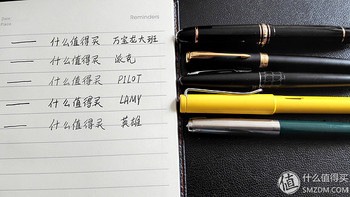 Reminders
什么值得买 万宝龙大班
什么值得买 派克
什么值得买 PILOT
什么值得买 LAMY
什么值得买 英雄
值 什么值得买
SMZDM.COM